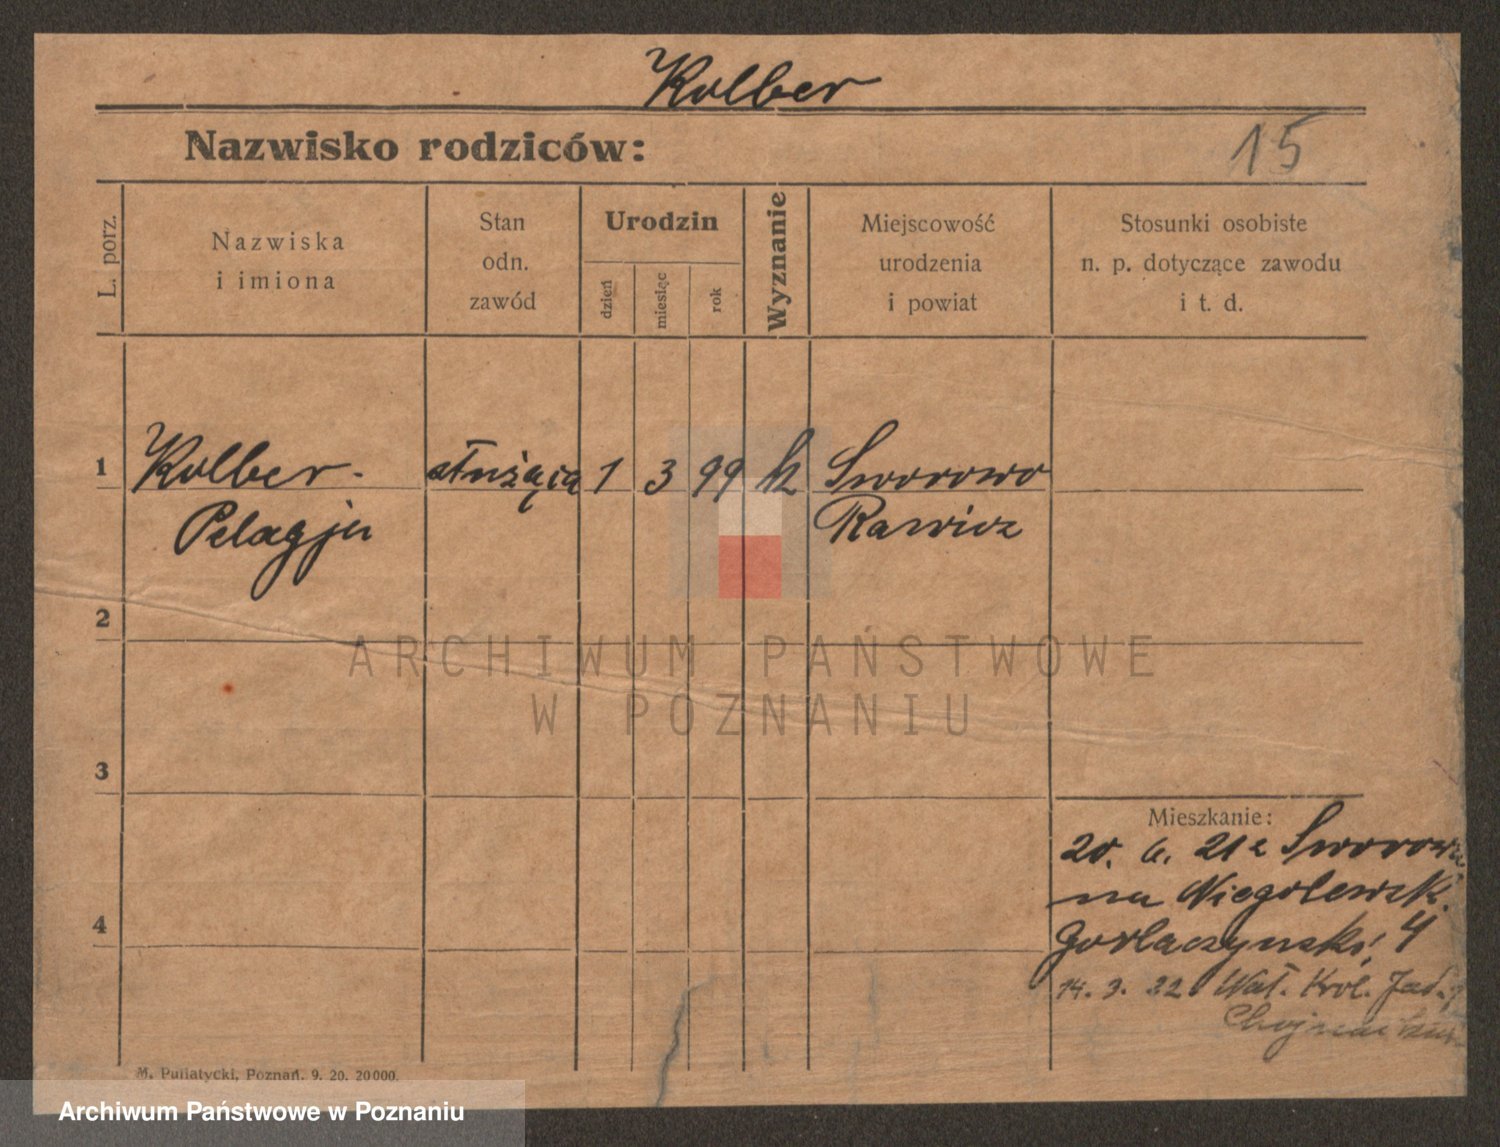 Kolber
Nazwisko rodziców:
15
L. porz.
Nazwiska
i imiona
Stan
odn.
zawód
Urodzin
dzień
miesiąc
rok
Wyznanie
Miejscowość
urodzenia
i powiat
Stosunki osobiste
n. p. dotyczące zawodu
i t. d.
1
Kolber
służąca 1 3 99 k Sworowo
Pelagja
Rawicz
2
3
4
Mieszkanie:
20. 6. 21 z Sworowa
na Niegolewsk.
Gorlaczyński 4
14. 3. 22 Wał. Król. Jad.
M. Putiatycki, Poznań. 9. 20. 20000.
ARCHIWUM PAŃSTWOWE
W POZNANIU
Archiwum Państwowe w Poznaniu